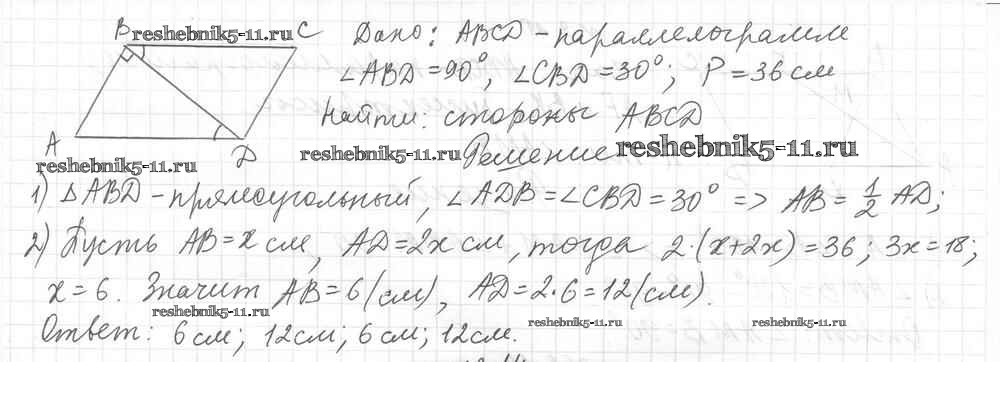 B reshebnik5-11.ru C Дано: ABCD - параллелограмм
∠ABD = 90°, ∠CBD = 30°; P = 36 см
Найти: стороны ABCD
A D
reshebnik5-11.ru reshebnik5-11.ru Решение reshebnik5-11.ru
1) △ABD - прямоугольный, ∠ADB = ∠CBD = 30° => AB = 1/2 AD;
2) Пусть AB = x см, AD = 2x см, тогда 2·(x+2x) = 36; 3x = 18;
x = 6. Значит AB = 6 (см), AD = 2·6 = 12 (см).
reshebnik5-11.ru reshebnik5-11.ru reshebnik5-11.ru
Ответ: 6 см; 12 см; 6 см; 12 см.